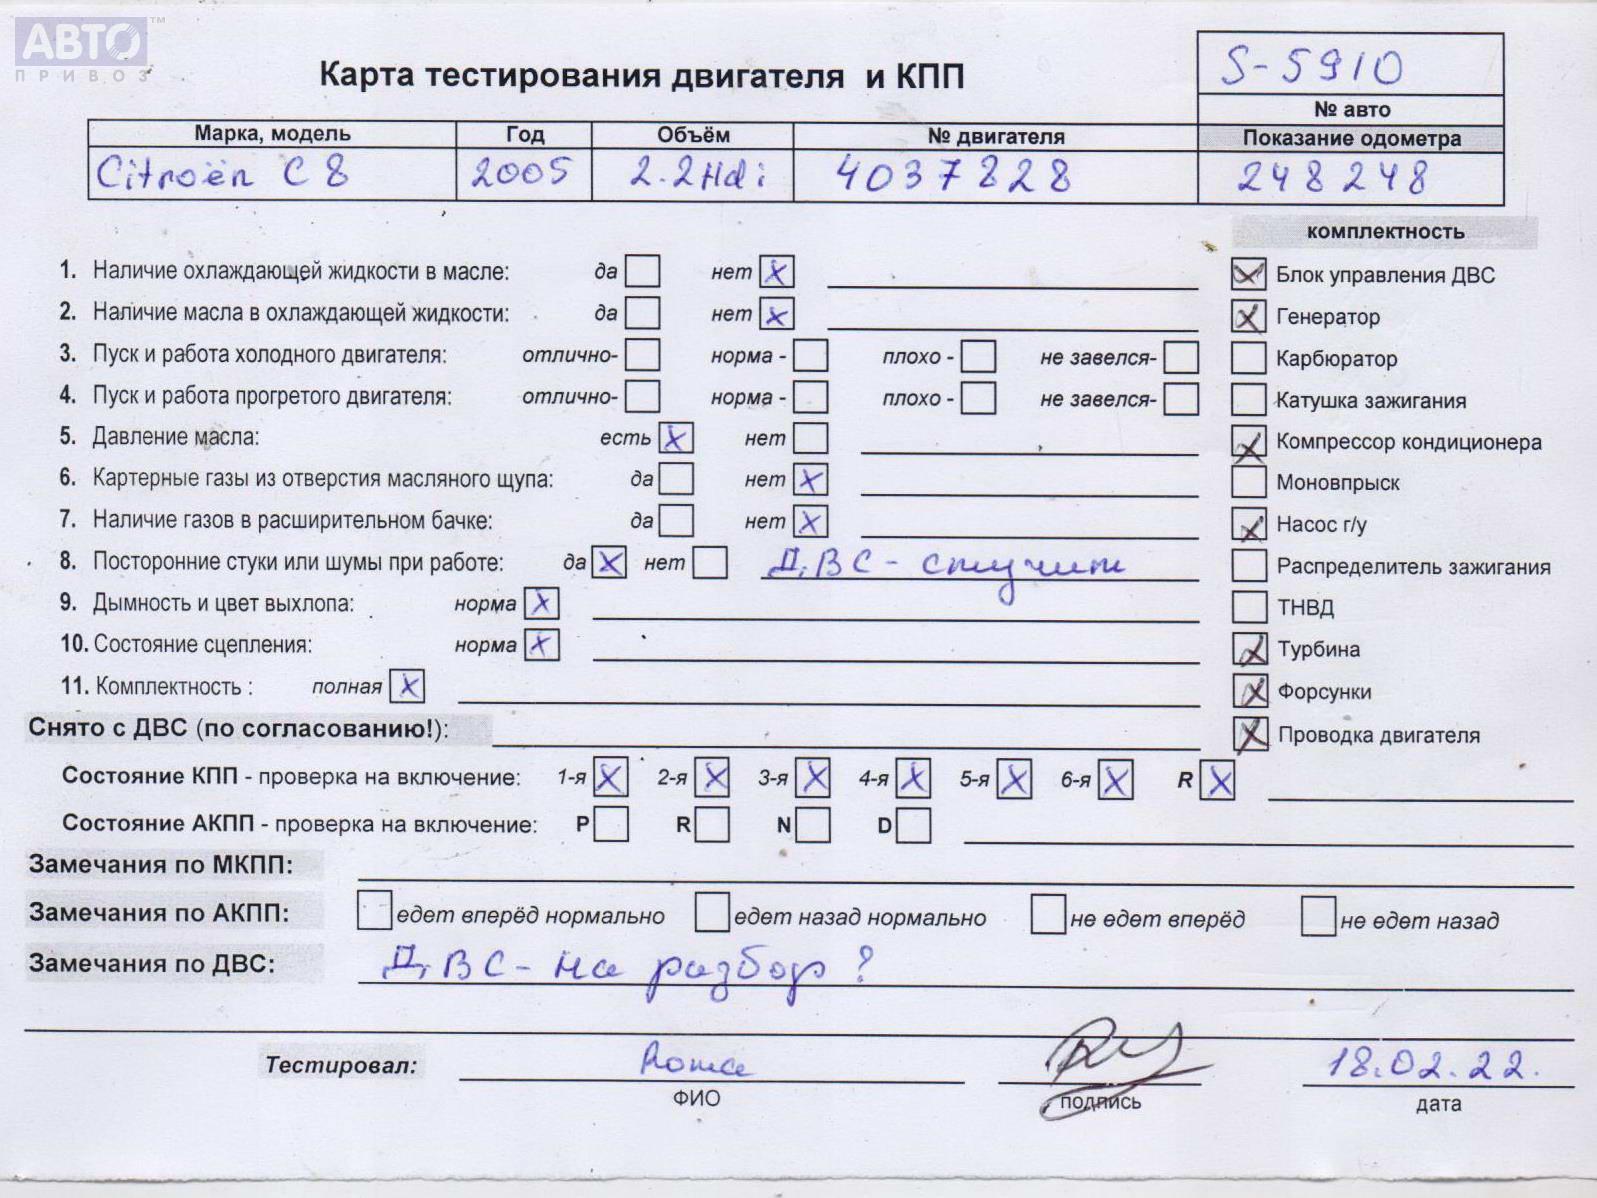 АВТО ™
ПРИВОЗ
S-5910
Карта тестирования двигателя и КПП
№ авто
Марка, модель Год Объём № двигателя Показание одометра
Citroën C8 2005 2.2Hdi 4037828 248248
комплектность
1. Наличие охлаждающей жидкости в масле: да нет X
X Блок управления ДВС
2. Наличие масла в охлаждающей жидкости: да нет X
X Генератор
3. Пуск и работа холодного двигателя: отлично- норма - плохо - не завелся-
Карбюратор
4. Пуск и работа прогретого двигателя: отлично- норма - плохо - не завелся-
Катушка зажигания
5. Давление масла: есть X нет
X Компрессор кондиционера
6. Картерные газы из отверстия масляного щупа: да нет X
Моновпрыск
7. Наличие газов в расширительном бачке: да нет X
X Насос г/у
8. Посторонние стуки или шумы при работе: да X нет ДВС - стучит
Распределитель зажигания
9. Дымность и цвет выхлопа: норма X
ТНВД
10. Состояние сцепления: норма X
X Турбина
11. Комплектность : полная X
X Форсунки
Снято с ДВС (по согласованию!):
X Проводка двигателя
Состояние КПП - проверка на включение: 1-я X 2-я X 3-я X 4-я X 5-я X 6-я X R X
Состояние АКПП - проверка на включение: P R N D
Замечания по МКПП:
Замечания по АКПП: едет вперёд нормально едет назад нормально не едет вперёд не едет назад
Замечания по ДВС: ДВС - на разбор ?
Тестировал: Рома 18.02.22.
ФИО подпись дата